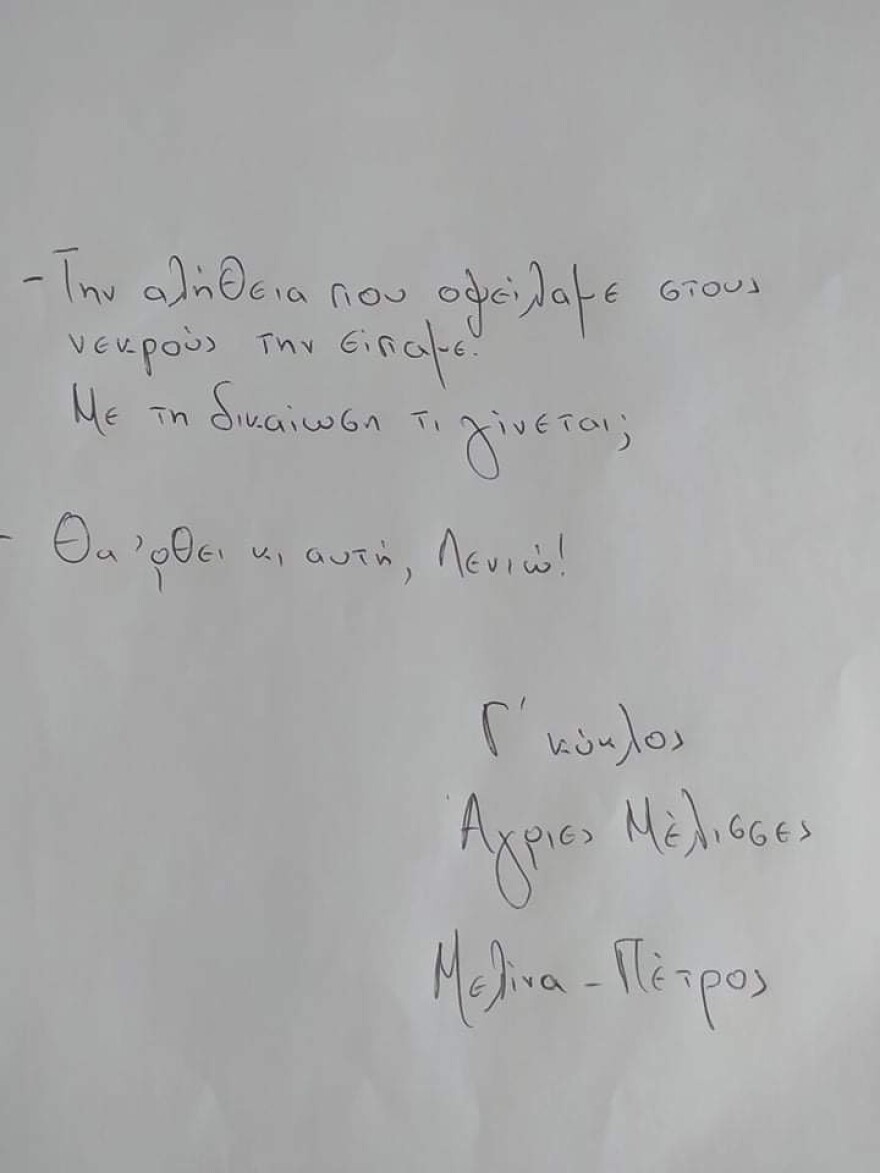 - Την αλήθεια που οφείλαμε στους
νεκρούς την είπαμε.
Με τη δικαίωση τι γίνεται;
- Θα 'ρθει κι αυτή, Λενιώ!
Γ' κύκλος
Άγριες Μέλισσες
Μελίνα - Πέτρος